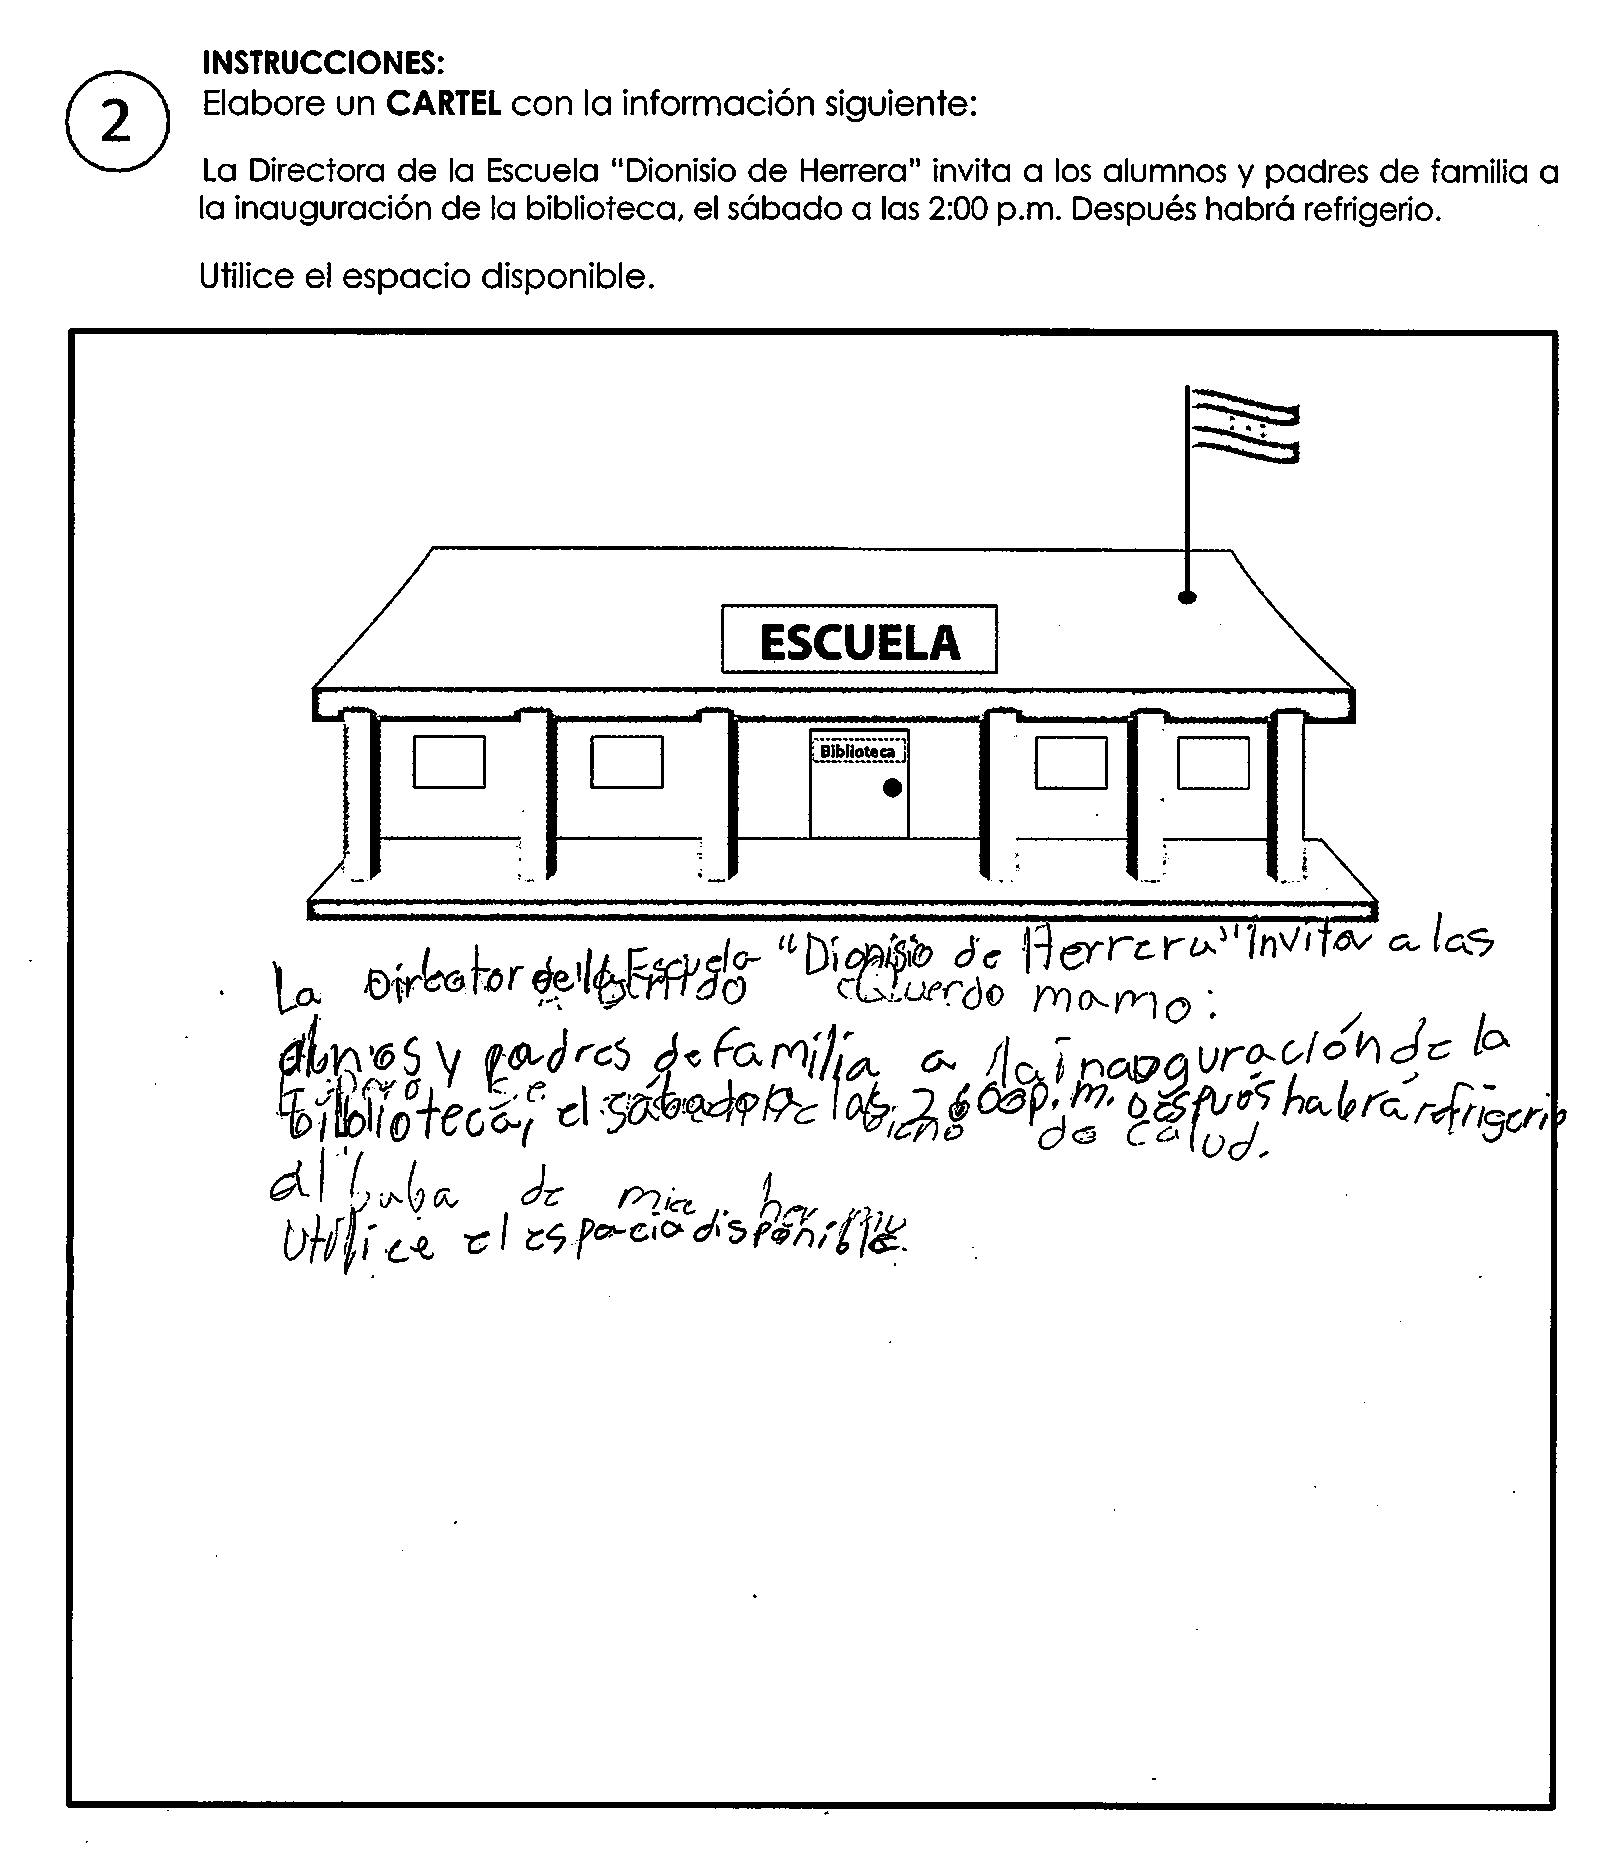 INSTRUCCIONES:
2
Elabore un CARTEL con la información siguiente:
La Directora de la Escuela "Dionisio de Herrera" invita a los alumnos y padres de familia a
la inauguración de la biblioteca, el sábado a las 2:00 p.m. Después habrá refrigerio.
Utilice el espacio disponible.
ESCUELA
Biblioteca
La Escuela "Dionisio de Herrera" invita a las
mamo:
y padres de familia a la inauguración de la
biblioteca, el p.m. Después habrá refrigerio
de calud.
al buba de
Utilice el espacio disponible.